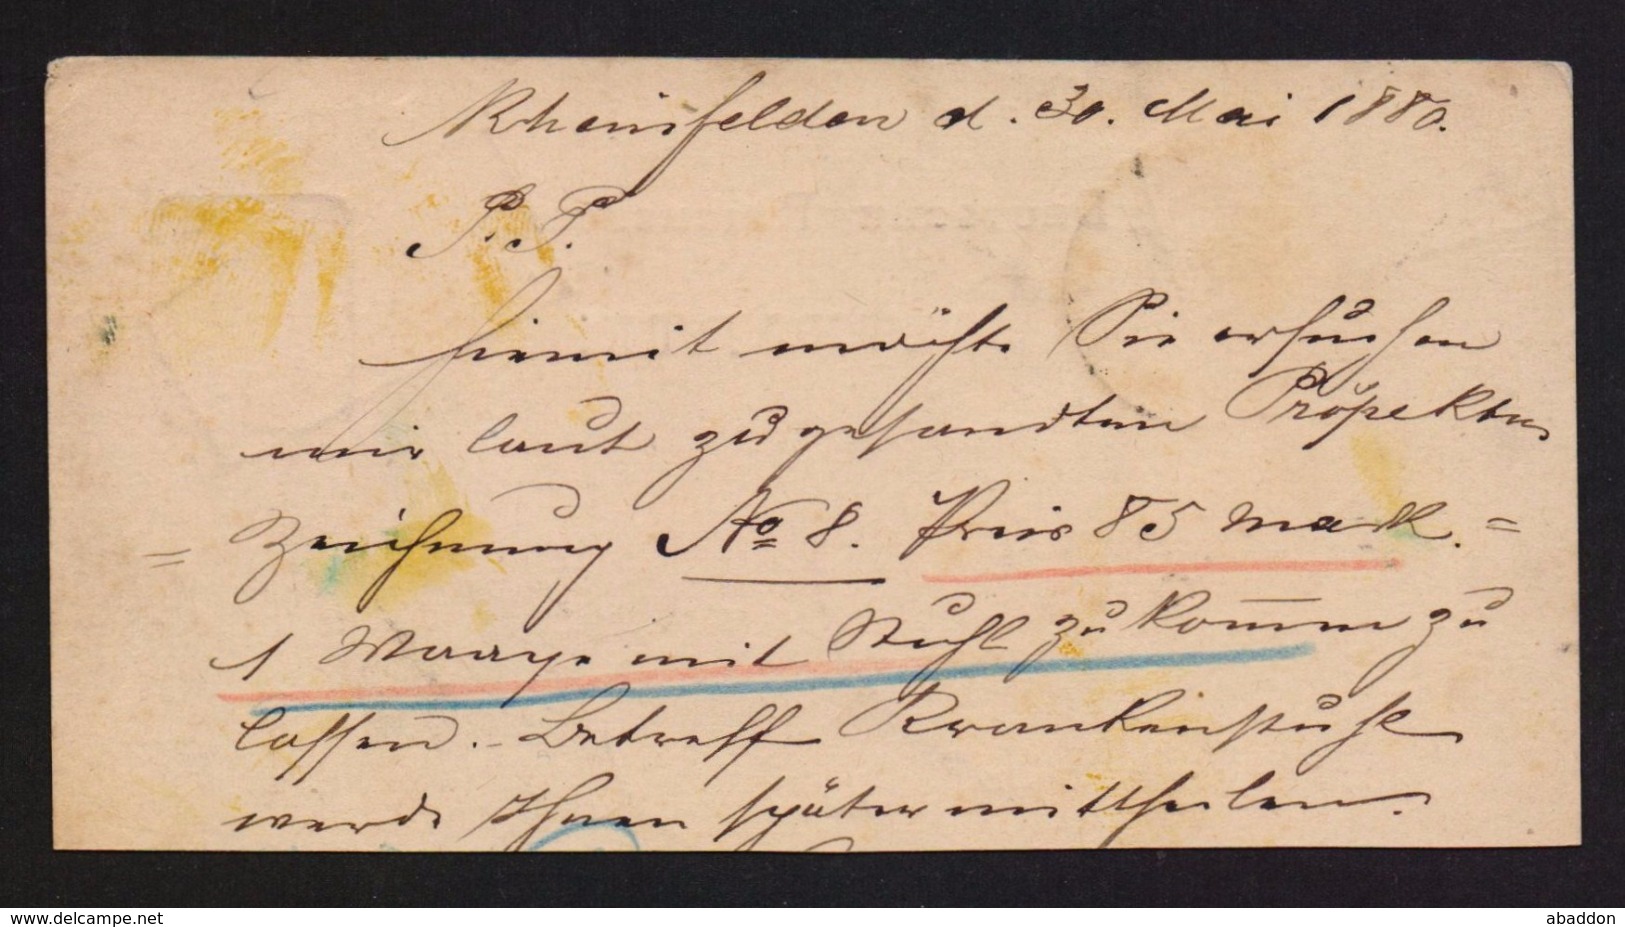 Rheinfelden d. 30. Mai 1880.
P. P.
Hiemit möchte Sie ersuchen
mir laut zugesandten Prospekten
= Zeichnung No 8. Preis 85 Mark. =
1 Waage mit Stuhl zukom̄en zu
lassen. - Betreff Krankenstuhl
werde Ihnen später mittheilen.
www.delcampe.net
abaddon